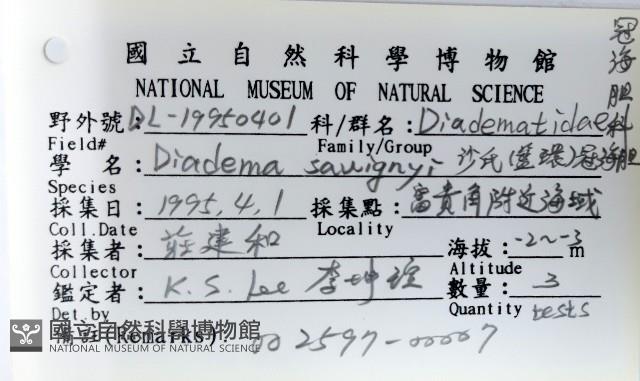 國立自然科學博物館
NATIONAL MUSEUM OF NATURAL SCIENCE
野外號：DL-19950401 科/群名：Diadematidae 冠海胆科
Field# Family/Group
學 名：Diadema savignyi 沙氏(藍環)冠海胆
Species
採集日：1995.4.1 採集點：富貴角附近海域
Coll.Date Locality
採集者：莊建和 海拔：-2~-3 m
Collector Altitude
鑑定者：K.S. Lee 李坤瑄 數量：3 tests
Det.by Quantity
備註(Remarks): 002597-00007
國立自然科學博物館
NATIONAL MUSEUM OF NATURAL SCIENCE